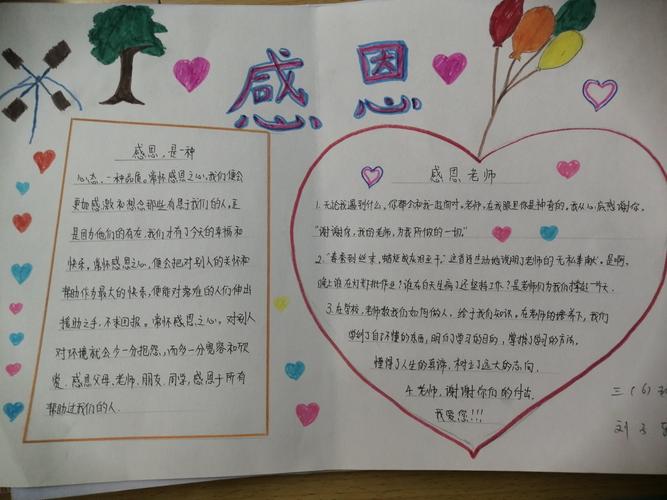 感恩
感恩，是一种
心态，一种品质。常怀感恩之心，我们便会
更加感激和想念那些有恩于我们的人，正
是因为他们的存在，我们才有了今天的幸福和
快乐，常怀感恩之心，便会把对别人的关怀和
帮助作为最大的快乐，便能对落难的人们伸出
援助之手，不求回报。常怀感恩之心，对别人
对环境就会少一分抱怨，而多一分宽容和欣
赏，感恩父母、老师、朋友、同学，感恩于所有
帮助过我们的人.
感恩老师
1. 无论我遇到什么，你都会和我一起面对。老师，在我眼里你是神奇的。我从心底感谢你。
"谢谢你，我的老师，为我所做的一切。"
2. "春蚕到丝末，蜡炬成灰泪至干"这首诗生动地说明了老师的无私奉献。是啊，
晚上谁在灯灯批作业？谁在白天生病了还坚持工作？是老师们为我们撑起一片天.
3. 在学校，老师教我们如何做人，给于我们知识，在老师的培养下，我们
学到了自己不懂的东西，明白了学习的目的，掌握了学习的方法，
懂得了人生的真谛，树立了远大的志向.
4. 老师，谢谢你们的付出.
我爱您!!!
三（6）
刘子